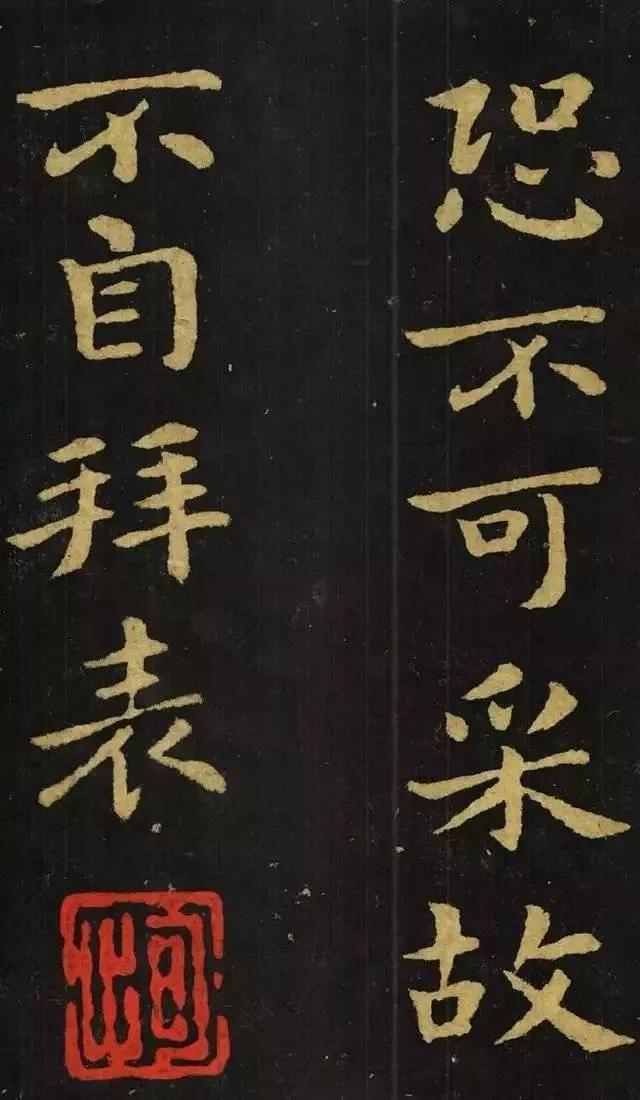 恐不可采故
不自拜表